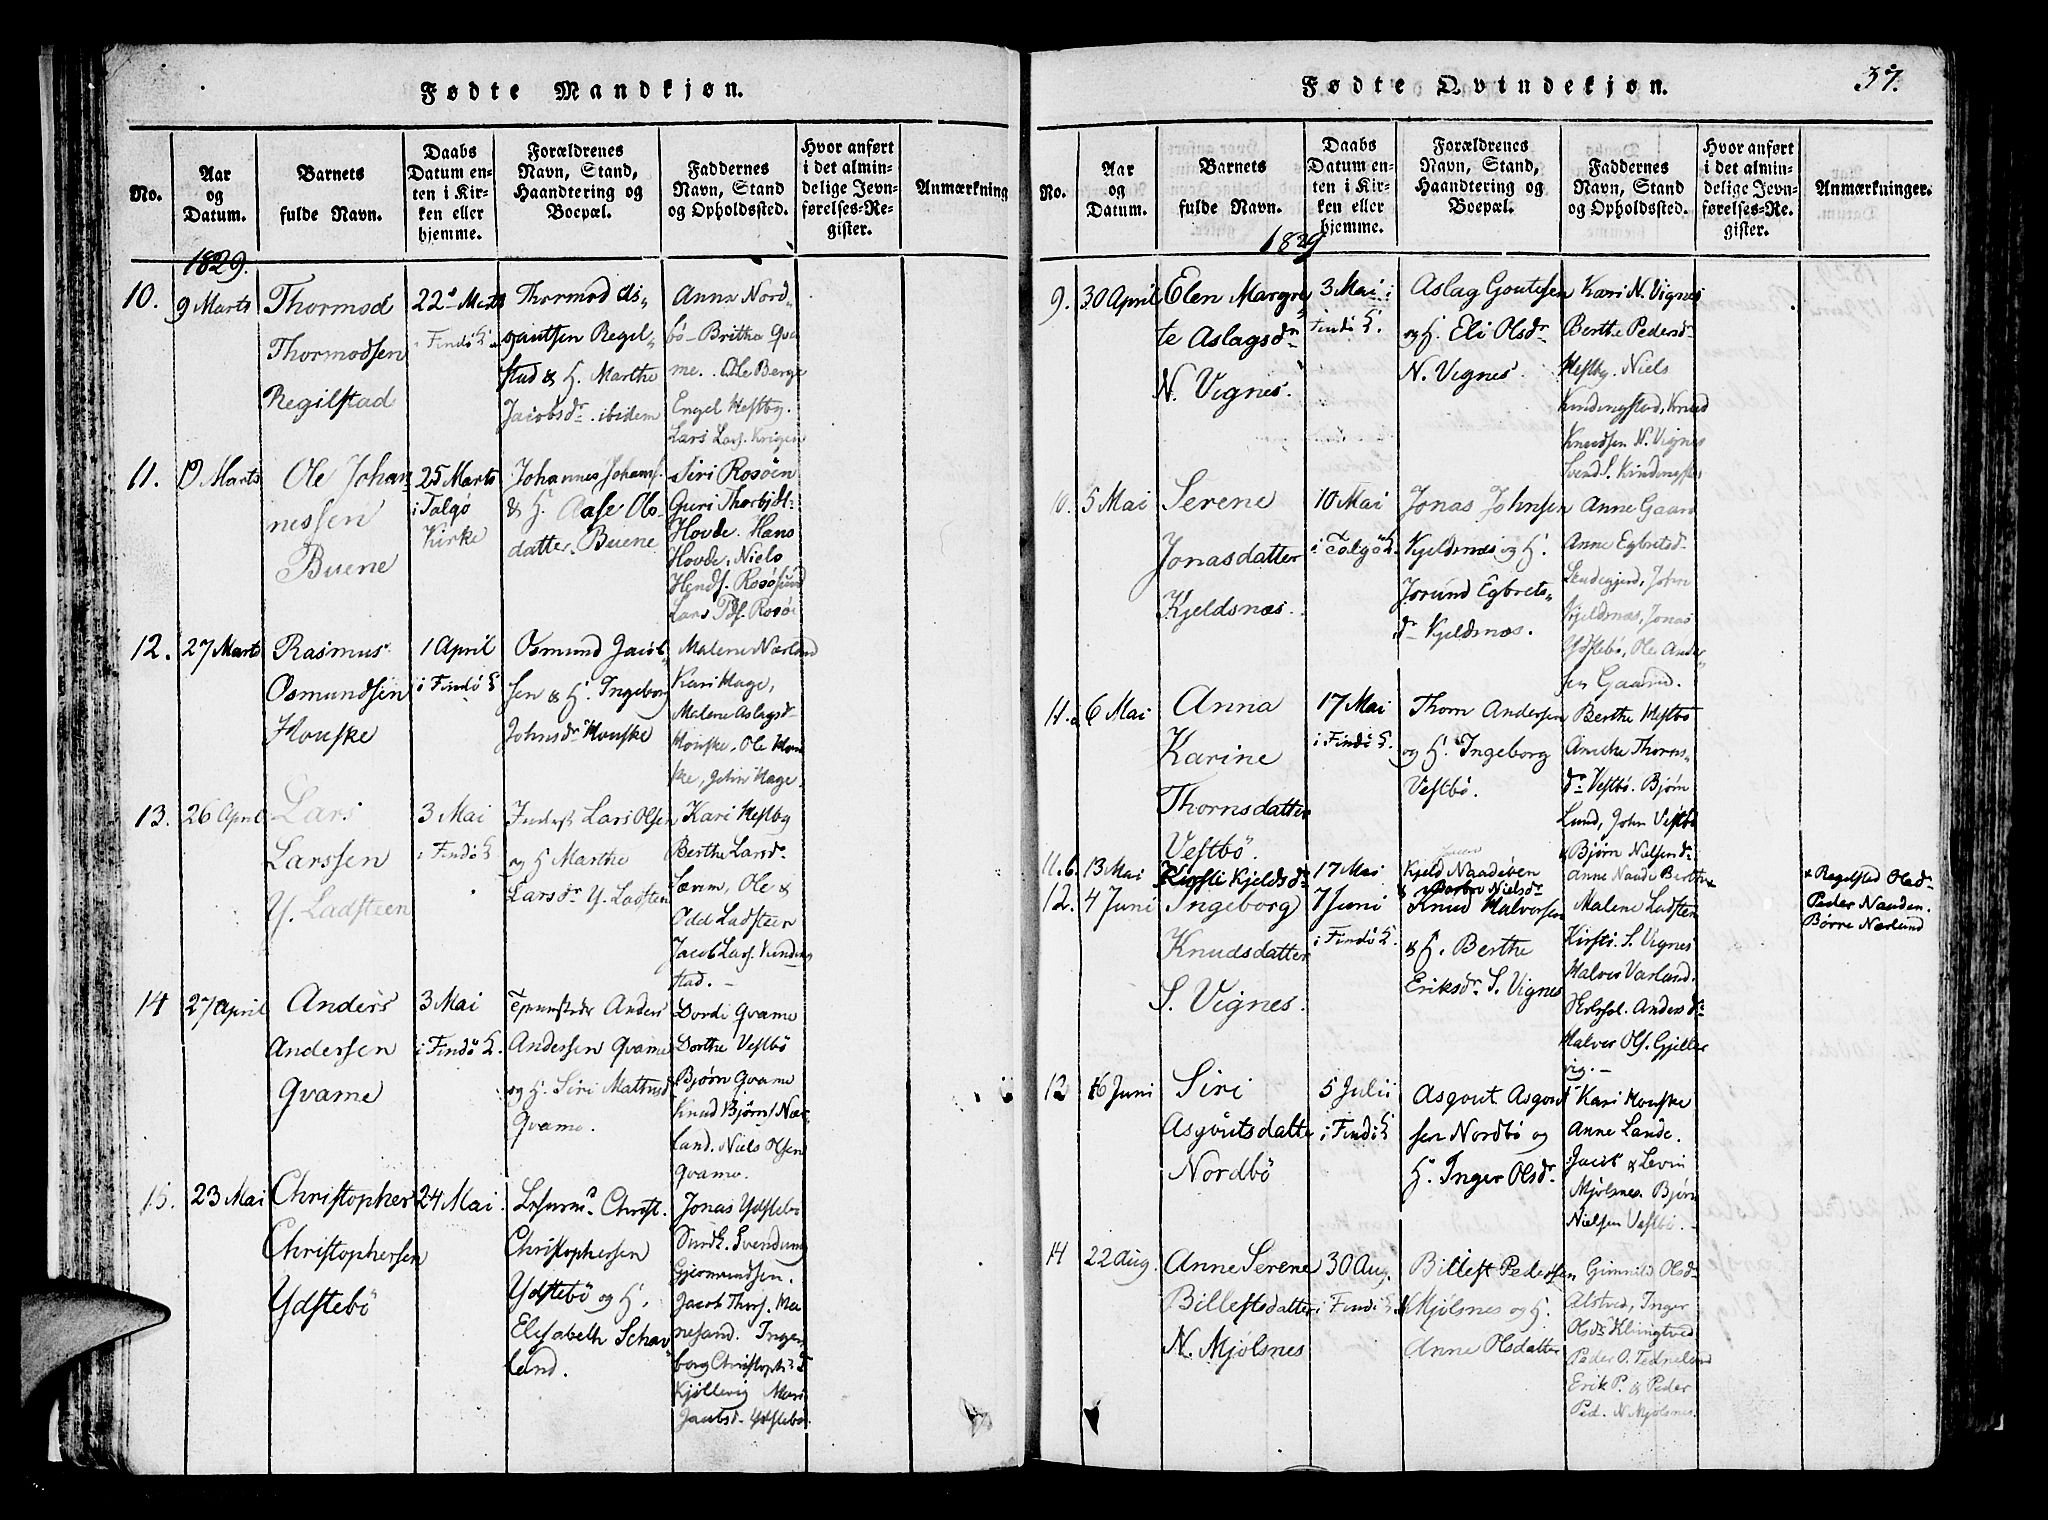 Fødte Mandkjøn.
No.
Aar
og
Datum.
Barnets
fulde Navn.
Daabs
Datum en-
ten i Kir-
ken eller
hjemme.
Forældrenes
Navn, Stand,
Haandtering og
Boepæl.
Faddernes
Navn, Stand
og Opholdssted.
Hvor anført
i det almin-
delige Jevn-
førelses-Re-
gister.
Anmærkning
1829.
10.
9 Marts
Thormod
Thormodsen
Regilstad
22de Marts
i Findö K.
Thormod As-
gautsen Regil-
stad & H. Marthe
Jacobsdr. ibidem
Anna Nord-
bö- Britha Qva
me. Ole Berge
Engel Hestby.
Lars Lars. Krigen
11.
19 Marts
Ole Johan
nessen
Buene
25 Marts
i Talgø
Kirke
Johannes Johans.
& H. Aase Ols-
datter. Buene
Siri Rosöen
Guri Thorbjdr.
Hovde. Hans
Hovde, Niels
Hends. Rosösund
Lars Rosöe
12.
27 Marts
Rasmus
Osmundsen
Houske
1 April
i Findö K
Osmund Jacob-
sen & H. Ingeborg
Johnsdr. Houske
Malene Nærland
Kari Hage,
Malene Aslagsd-
Houske, Ole Hou
ske, John Hage.
13.
26 April
Lars
Larssen
Y. Ladsteen
3 Mai
i Findö K
Lars Olsen
og H Marthe
Larsdr. Y. Ladsteen
Kari Hestby
Berthe Larsdr.
Ole &
Odd Ladsteen
Jacob Lars. Kinding
stad. -
14
27 April
Anders
Andersen
Qvame
3 Mai
i Findö K.
Anders
Andersen Qvame
og H. Siri
Qvame.
Dordi Qvame
Dorthe Vestbö
Bjørn Qvame
Knud Bjørns Nær
land. Niels Olsen
Qvame.
15.
23 Mai
Christopher
Christophersen
Ydstebö
24 Mai
Christ.
Christophersen
Ydstebö og H.
Elisabeth Schav
land.
Jonas Ydstebö
Svendung
Gjermundsen.
Jacob Thors. Ma
nesand. Inge
borg Christoph: D
Kjöllevig Mari
Jacobsd- Ydstebö.
Fødte Qvindekjøn.
37.
No.
Aar
og
Datum.
Barnets
fulde Navn.
Daabs
Datum en-
ten i Kir-
ken eller
hjemme.
Forældrenes
Navn, Stand,
Haandtering og
Boepæl.
Faddernes
Navn, Stand
og Opholdssted.
Hvor anført
i det almin-
delige Jevn-
førelses-Re-
gister.
Anmærkninger.
1829
9.
30 April
Elen Margre
te Aslagsdr.
N. Vignes.
3 Mai i
Findö K.
Aslag Goutesen
og H. Eli Olsdr.
N. Vignes.
Kari N. Vignes
Berthe Pedersdr
Hestby. Niels
Kindingstad, Knud
Knudsen N. Vignes
Svend S.
10.
5 Mai
Serene
Jonasdatter
Kjeldsnæs.
10 Mai
i Talgö K.
Jonas Johnsen
Kjeldsnæs og H.
Jorund Egbrets-
dr Kjeldsnæs.
Anne Gaard
Anne Egbretsd-
Lendegjerd, John
Kjeldsnæs, Jonas
Ydstebö, Ole Ander-
sen Gaard.
11.a
6 Mai
Anna
Karine
Thornsdatter
Vestbö.
17 Mai
i Findö K.
Thorn Andersen
og H. Ingeborg
Vestbö.
Berthe Hestbö
Thorns-
dr. Vestbö. Bjørn
Lund, John Vestbö
& Bjørn Nielsen
11.b.
13 Mai
Kirsti Kjeldsdr
17 Mai
Kjeld Naadöen
& Nielsdr
Anne Naade Berthe
× Regelstad Olsdr.
Peder Nauden.
Børre Nærland
12.
4 Juni
Ingeborg
Knudsdatter
S. Vignes.
7 Juni
i Findö K.
Knud Halvorsen
& H. Berthe
Eriksdr. S. Vignes
Malene Ladsten
Kirsti. S. Vignes
Halvor Varland.
Andersdr.
Halvor Ols. Gjeller
vig. -
12
16 Juni
Siri
Asgoutsdatter
Nordbö
5 Julii
i Findö K
Asgout Asgout
sen Nordbö og
H. Inger Olsdr.
Kari Houske
Anne Lande.
Jacob & Levin
Mjölsnes. Bjørn
Nielsen Vestbö.
14
22 Aug.
Anne Serene
Billestsdatter
N. Mjölsnes
30 Aug.
i Findö K.
Billest Pedersen
N Mjölsnes og H.
Anne Olsdatter
Gunnild Olsd-
Alstved, Inger
Olsdr Klungtved
Peder O.
Erik P. & Peder
Ped. N. Mjölsnes.